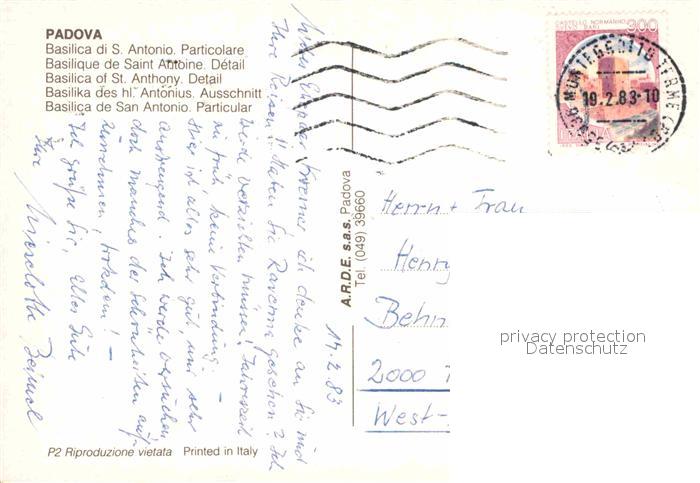 PADOVA
Basilica di S. Antonio. Particolare
Basilique de Saint Antoine. Détail
Basilica of St. Anthony. Detail
Basilika des hl. Antonius. Ausschnitt
Basilica de San Antonio. Particular
14.2.83
ich denke an Sie und
Ihre Reisen!! Haben Sie Ravenna gesehen? Ich
werde verzichten müssen! Jahreszeit
zu früh, keine Verbindung. –
Hier ist alles sehr gut, nur sehr
anstrengend. Ich werde versuchen
doch manches der Schönheiten auf-
zunehmen, trotzdem! –
Ich grüße Sie, Alles Gute
Ihre
A.R.D.E. s.a.s. Padova
Tel. (049) 39660
CASTELLO NORMANNO
300
MONTEGROTTO TERME
19.2.83-10
Herrn + Frau
Henry
Behn
2000
West-
privacy protection
Datenschutz
P2 Riproduzione vietata Printed in Italy